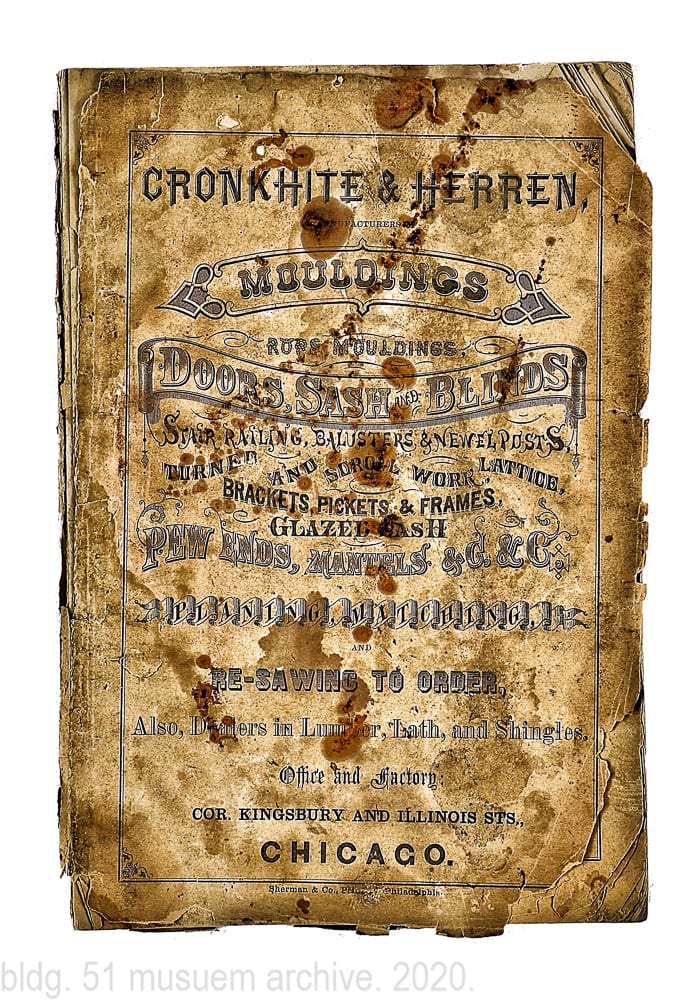 CRONKHITE & HERREN,
MANUFACTURERS OF
MOULDINGS
ROPE MOULDINGS,
DOORS, SASH AND BLINDS
STAIR RAILING, BALUSTERS & NEWEL POSTS,
TURNED AND SCROLL WORK, LATTICE,
BRACKETS, PICKETS, & FRAMES,
GLAZED SASH
PEW ENDS, MANTELS &C. &C.
PLANING, MATCHING,
AND
RE-SAWING TO ORDER,
Also, Dealers in Lumber, Lath, and Shingles.
Office and Factory:
COR. KINGSBURY AND ILLINOIS STS.,
CHICAGO.
Sherman & Co., Philadelphia.
bldg. 51 musuem archive. 2020.